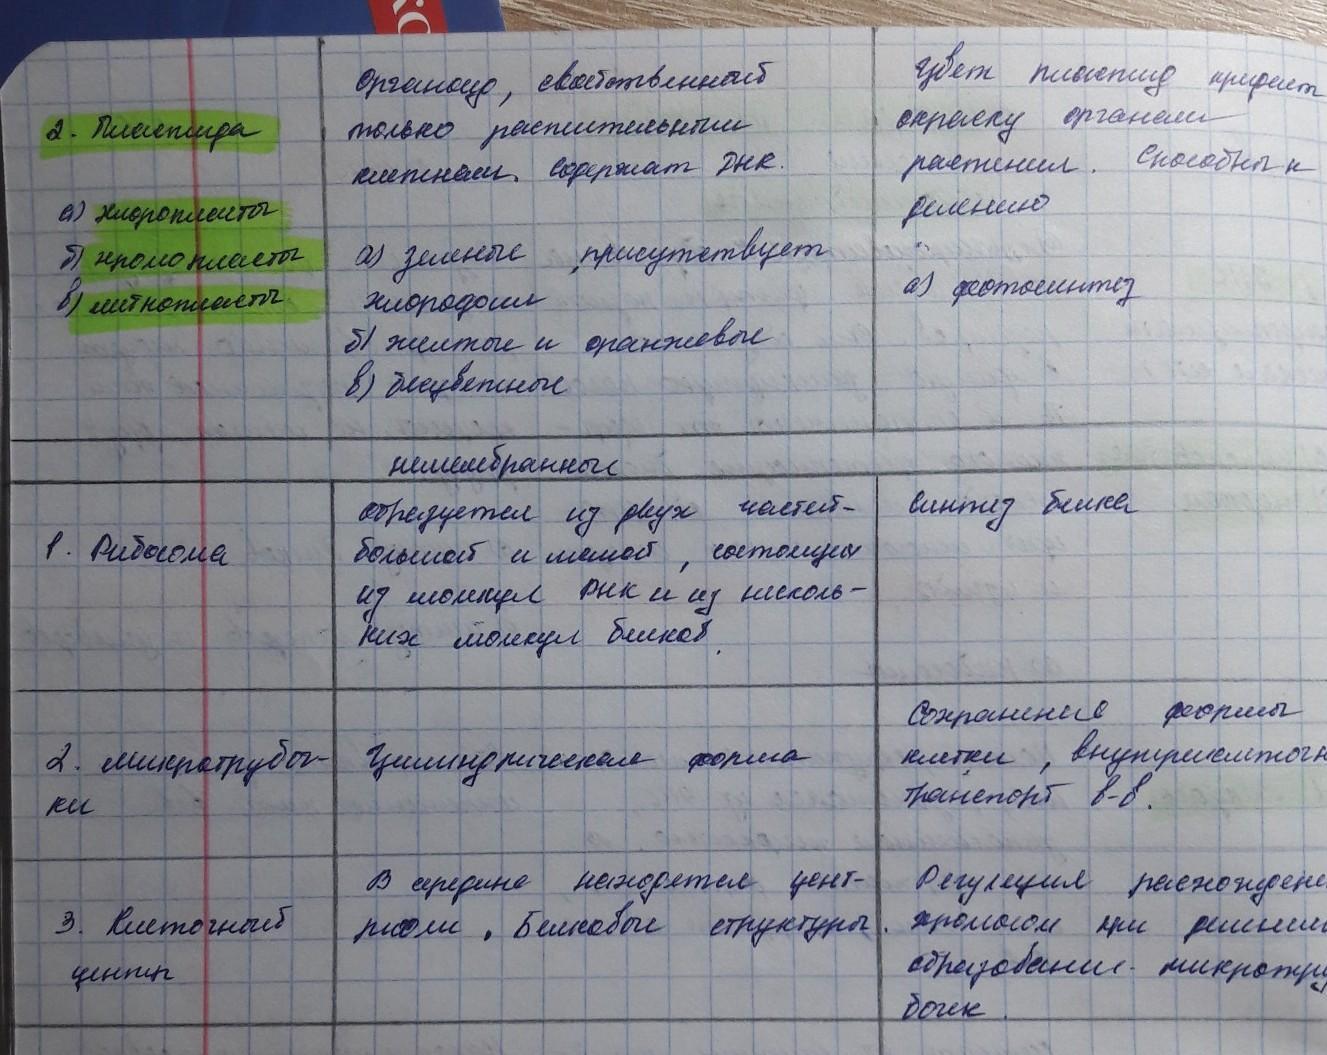 КО
2. Пластида
а) хлоропласты
б) хромопласты
в) лейкопласты
Органоид, свойственный
только растительным
клеткам. Содержат ДНК.
а) зеленые, присутствует
хлорофилл
б) желтые и оранжевые
в) бесцветные
Цвет пластид придает
окраску органам
растения. Способны к
делению
а) фотосинтез
немембранные
1. Рибосома
образуется из двух частей-
большой и малой, состоящих
из молекул РНК и из несколь-
ких молекул белков.
синтез белка
2. Микротрубоч-
ки
Цилиндрическая форма
Сохранение формы
клетки, внутриклеточн
транспорт в-в.
3. Клеточный
центр
В середине находятся цент-
риоли. Белковые структуры.
Регуляция расхожден
хромосом при делении
образование микротру
бочек.